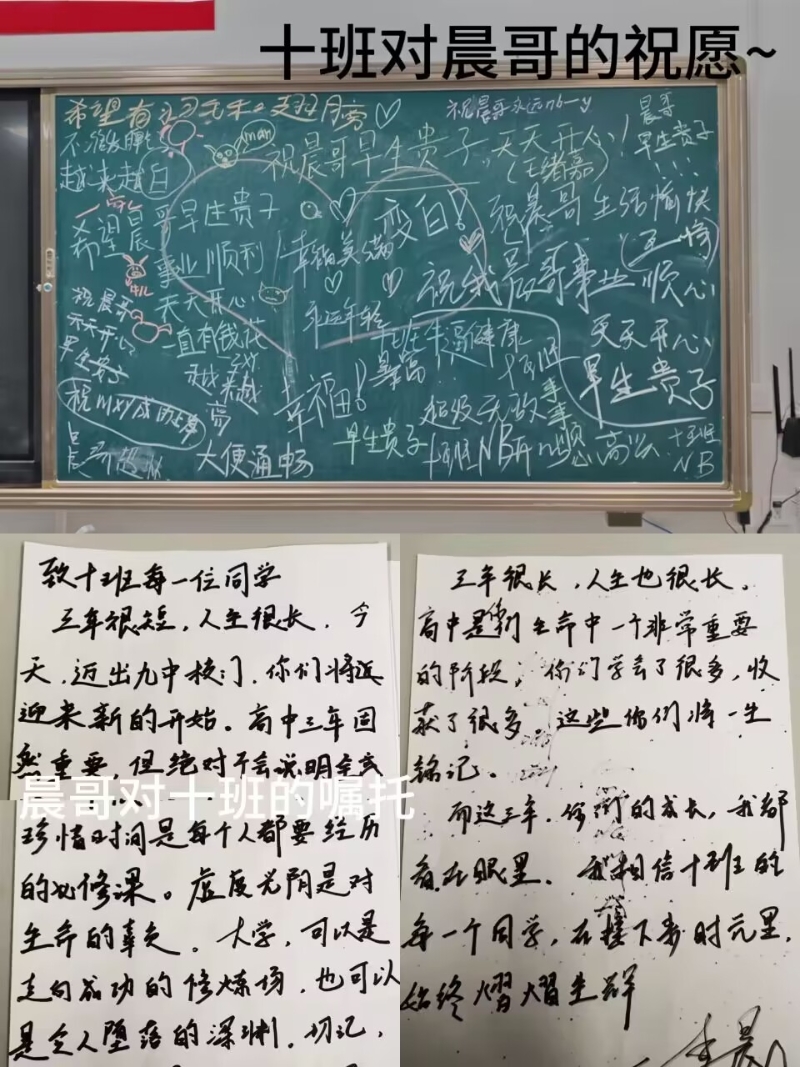 十班对晨哥的祝愿~
希望有
祝晨哥永远nb
晨哥
早生贵子
!!!
man
祝晨哥早生贵子,天天开心!
越来越白
变白!
祝晨哥生活愉快
希望晨哥早生贵子
事业顺利
幸福美满
祝我晨哥事业顺心
天天开心
一直有钱花
越来越
永远年轻
十班牛逼健康
暴富
天天开心
早生贵子
祝晨哥
天天开心
早生贵子
幸福!
超级无敌
事事
顺心
早生贵子
十班NB
大便通畅
十班
NB
致十班每一位同学
三年很短,人生很长,今
天,迈出九中校门,你们将迎
迎来新的开始。高中三年固
然重要,但绝对不会说明
晨哥对十班的嘱托
珍惜时间是每个人都要经历
的必修课。虚度光阴是对
生命的辜负。大学,可以是
走向成功的修炼场,也可以
是令人堕落的深渊。切记,
三年很长,人生也很长。
高中是你们生命中一个非常重要
的阶段,你们学会了很多,收
获了很多 这些你们将一生
铭记。
而这三年,你们的成长,我都
看在眼里。我相信十班的
每一个同学,在接下来时光里,
始终熠熠生辉